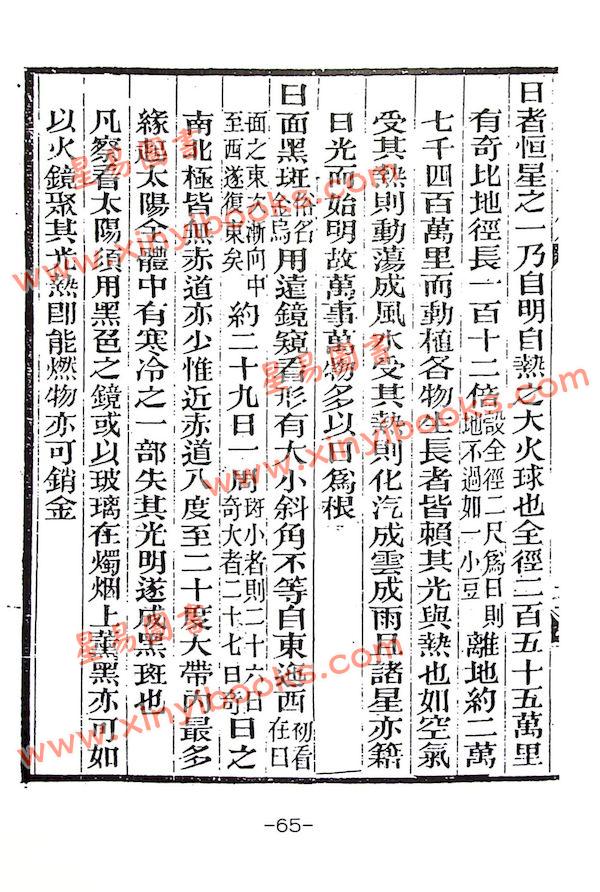 日者恒星之一乃自明自熱之大火球也全徑二百五十五萬里
有奇比地徑長一百十二倍設全徑二尺爲日則地不過如一小豆離地約二萬
七千四百萬里而動植各物生長者皆賴其光與熱也如空氣
受其熱則動蕩成風水受其熱則化汽成雲成雨月諸星亦籍
日光而始明故萬事萬物多以日爲根
日面黑斑俗名金烏用遠鏡窺看形有大小斜角不等自東迤西初看在日
面之東次漸向中至西遂復東矣約二十九日一周斑小者則二十六日奇大者二十七日奇日之
南北極皆無赤道亦少惟近赤道八度至二十度大帶內最多
緣起太陽全體中有寒冷之一部失其光明遂成黑斑也
凡察看太陽須用黑色之鏡或以玻璃在燭烟上薰黑亦可如
以火鏡聚其光熱即能燃物亦可銷金
星易圖書
www.xinyibooks.com
星易圖書
www.xinyibooks.com
星易圖書
www.xinyibooks.com
-65-